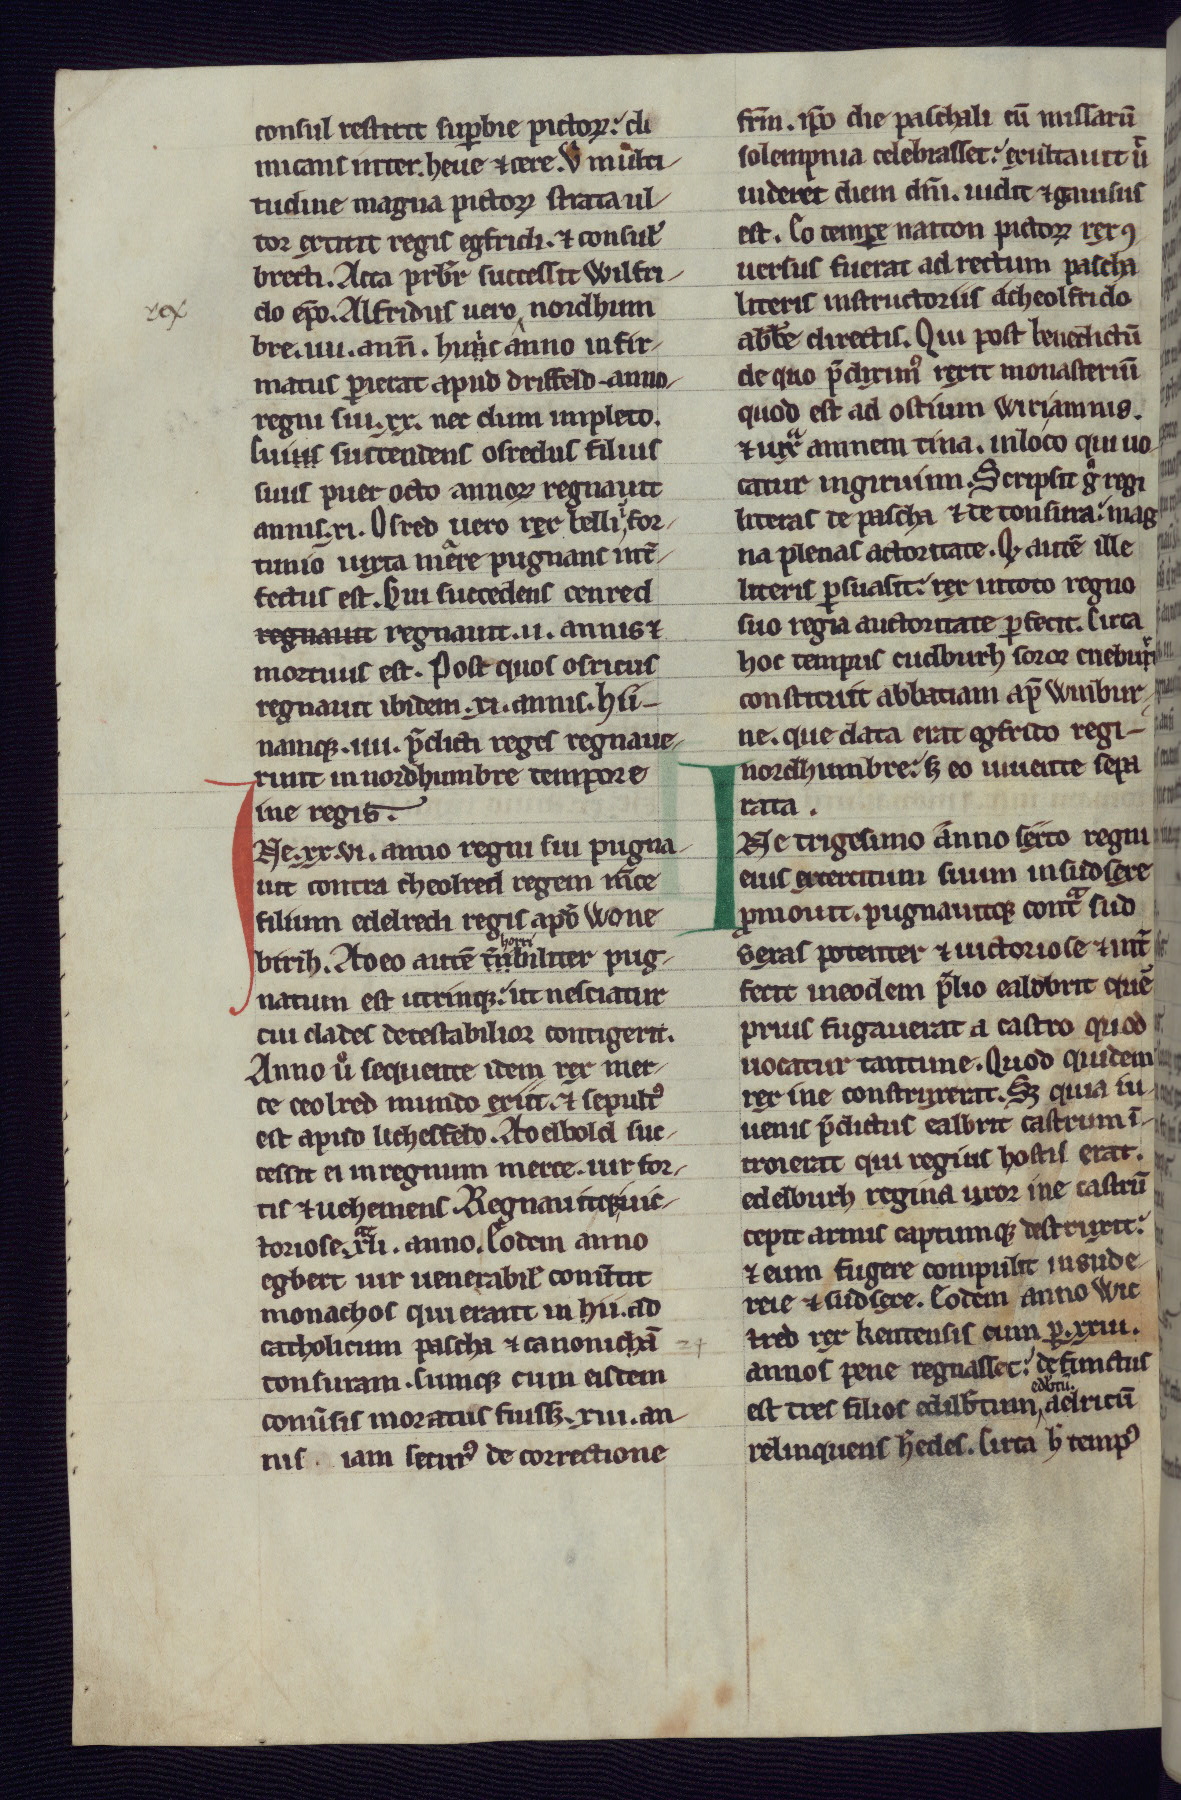 consul restitit supͥbie pictoꝝ: di
micans inter. heue ⁊ cere. V͛ multi-
tudine magna pictoꝝ strata ul-
tor extitit regis egfridi. ⁊ consuł
brecti. Acta prƀr successit Wilfri-
do ep̄o. Alfridus uero nordhum
rex
bre. uu. ann̄. hunc anno infir-
matus perierat apud driffeld. anno
regni sui. xx. nec dum impleto.
Cuius succedens osredus filius
suus puer octo annoꝝ regnauit
annis. xi. Osred uero rex belli for-
tunio iuxta mere pugnans int̄-
fectus est. Cui succedens cenred
regnauit regnauit. ii. annis ⁊
mortuus est. Post quos osricus
regnauit ibidem. xi. annis. hii-
namqꝫ. iiii. p̄dicti reges regnaue-
runt in nordhumbre tempore
ine regis.
INe. xx. vi. anno regni sui pugna-
uit contra cheolred regem m̄ce
filium edelredi regis apd̄ Wone
birih. Adeo autē t̄ribiliter pug-
horri
natum est utrinqꝫ: ut nesciatur
cui clades detestabilior contigerit.
Anno ů sequente idem rex mer-
ce ceolred mundo exiit. ⁊ sepultꝰ
est apud lichesfeld. Adelbold suc-
cessit ei in regnum merce. uir for-
tis ⁊ uehemens. Regnauitqꝫ uic-
toriose. xli. anno. Eodem anno
egbert uir uenerabił conūtit
monachos qui erant in hii. ad
catholicum pascha ⁊ canonichā
tonsuram. Cumqꝫ cum eisdem
conūsis moratus fuissꝫ. xiii. an-
nis iam securꝰ de correctione
fr̄m. ip̄o die paschali cū missarū
solempnia celebrasset: exultauit ů
uideret diem dn̄i. uidit ⁊ gauisus
est. Eo tempe naiton pictoꝝ rex ꝯ-
uersus fuerat ad rectum pascha
literis instructoriis a cheolfrido
abb̄e directis. Qui post benedictū
de quo p̄diximꝰ rexit monasteriū
quod est ad ostium wiri amnis.
⁊ iuxͣ amnem tina. in loco qui uo-
catur ingiruum. Scripsit gͦ regi
literas de pascha ⁊ de tonsura: mag
na plenas actoritate. Qꝫ autē ille
literis p̱suasit: rex in toto regno
suo regia auctoritate p̱fecit. Circa
hoc tempus cudburh soror
constituit abbatiam ap̄ winbur-
ne. que data erat ogfrido regi-
nordhumbre: sꝫ eo uiuente sepa
rata.
INe trigesimo anno sexto regni
eius exercitum suum in sudsexe
p̱mouit. pugnauitqꝫ contͣ sud
sexas potenter ⁊ uictoriose ⁊ int̄
fecit in eodem p̄lio ealdbrit quē
prius fugauerat a castro quod
uocatur tantune. Quod quidem
rex ine construxerat. Sꝫ quia iu-
uenis p̄dictus ealbrit castrum ī-
troierat qui regius hostis erat.
edelburh regina uxor ine castrū
cepit armis captumqꝫ destruxit:
⁊ eum fugere compulit in sude-
reie ⁊ sudsexe. Eodem anno Wic
tred rex kentensis cum p̱. xxiii.
annos pene regnasset: defunctus
est tres filios edilb̄tum, aelricū
edb̄tū.
relinquens h̄edes. Circa h̄ tempꝰ